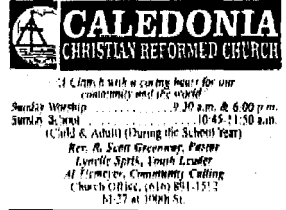 CALEDONIA
CHRISTIAN REFORMED CHURCH
"A Church with a caring heart for our
community and the world"
Sunday Worship . . . . . . . . . . . . . 9:30 a.m. & 6:00 p.m.
Sunday School . . . . . . . . . . . . . 10:45-11:50 a.m.
(Child & Adult) (During the School Year)
Rev. R. Scott Greenway, Pastor
Lynelle Sprik, Youth Leader
Al Community Calling
Church Office, (616) 891-1512
M-37 at 100th St.